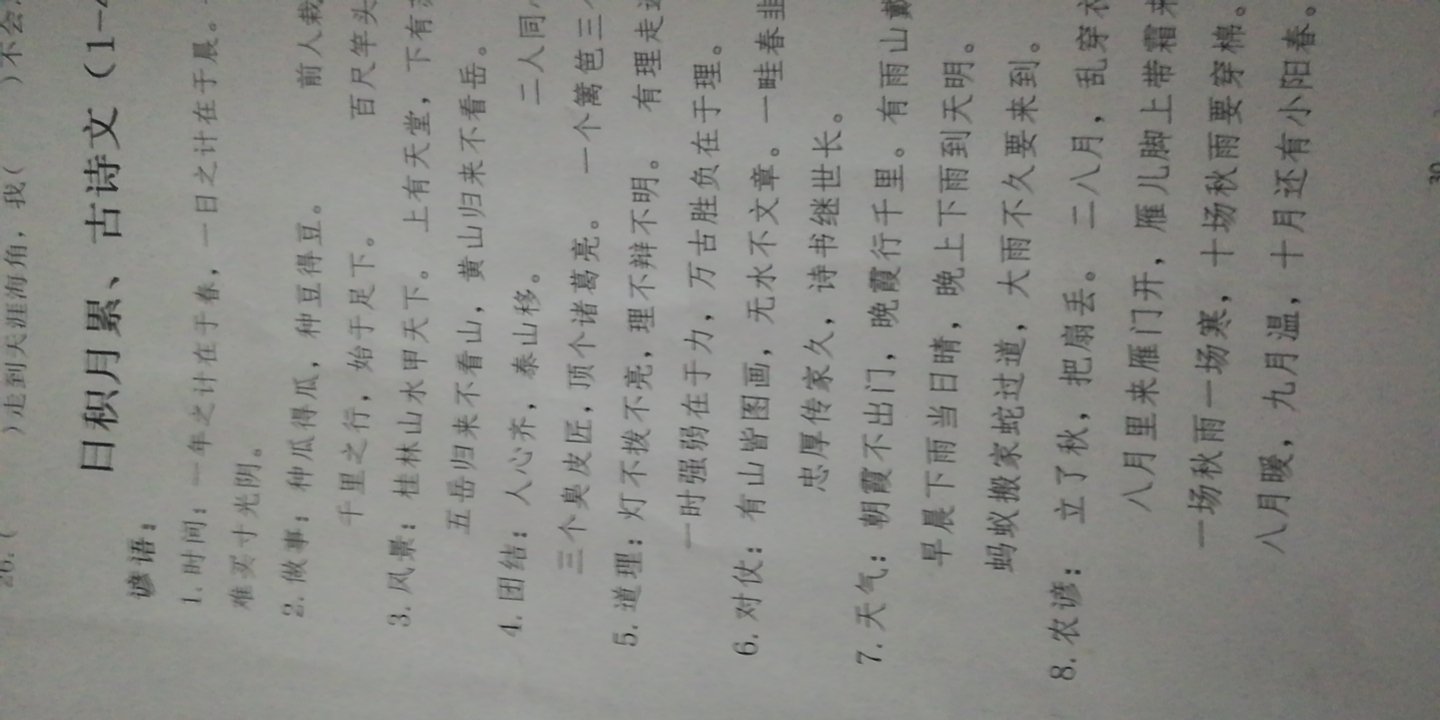 26.(　　)走到天涯海角，我(　　)不会
日积月累、古诗文（1-
谚语：
1.时间：一年之计在于春，一日之计在于晨。
难买寸光阴。
2.做事：种瓜得瓜，种豆得豆。　前人栽
千里之行，始于足下。　百尺竿头
3.风景：桂林山水甲天下。上有天堂，下有苏
五岳归来不看山，黄山归来不看岳。
4.团结：人心齐，泰山移。　二人同
三个臭皮匠，顶个诸葛亮。　一个篱笆三
5.道理：灯不拨不亮，理不辩不明。　有理走遍
一时强弱在于力，万古胜负在于理。
6.对仗：有山皆图画，无水不文章。一畦春韭
忠厚传家久，诗书继世长。
7.天气：朝霞不出门，晚霞行千里。有雨山戴
早晨下雨当日晴，晚上下雨到天明。
蚂蚁搬家蛇过道，大雨不久要来到。
8.农谚：立了秋，把扇丢。二八月，乱穿衣
八月里来雁门开，雁儿脚上带霜来
一场秋雨一场寒，十场秋雨要穿棉。
八月暖，九月温，十月还有小阳春。
30